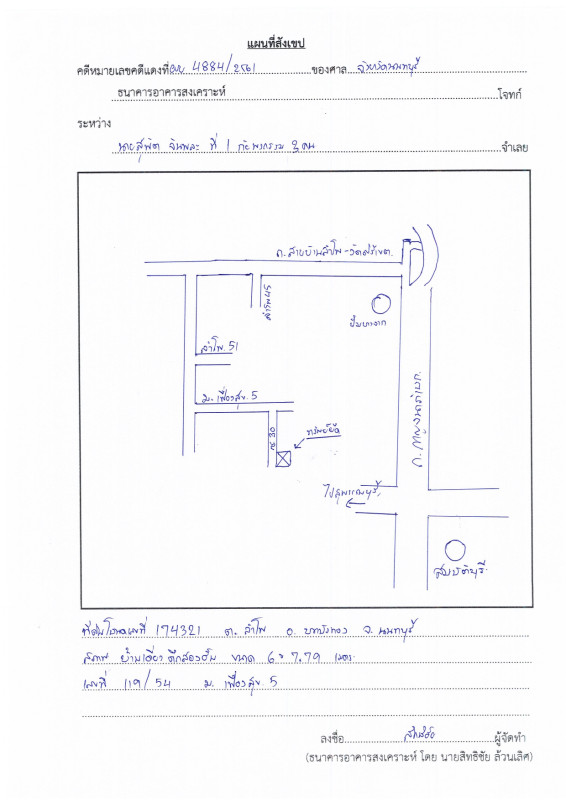 แผนที่สังเขป
คดีหมายเลขคดีแดงที่ ผบ 4884/2561 ของศาล จังหวัดนนทบุรี
ธนาคารอาคารสงเคราะห์ โจทก์
ระหว่าง
นายสุพิศ ที่ 1 กับพวกรวม 2 คน จำเลย
ถ.สายบ้านลำโพ-วัด
ลำโพ 45
ปั๊มบางจาก
ลำโพ 51
ม. เฟื่องสุข 5
ซ. 30
ทรัพย์ยึด
ถ. กาญจนาภิเษก
ไปสุพรรณบุรี
สมบัติบุรี
ที่ดินโฉนดเลขที่ 174321 ต. ลำโพ อ. บางบัวทอง จ. นนทบุรี
สภาพ บ้านเดี่ยว ตึกสองชั้น ขนาด 6 x 7.79 เมตร
เลขที่ 119/54 ม. เฟื่องสุข 5
ลงชื่อ ผู้จัดทำ
(ธนาคารอาคารสงเคราะห์ โดย นายสิทธิชัย ล้วนเลิศ)